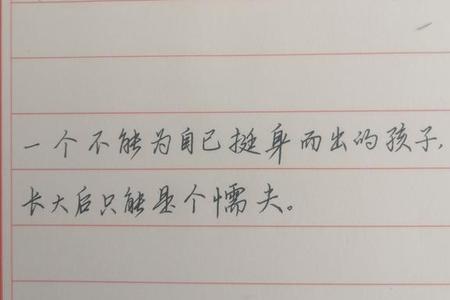 一个不能为自己挺身而出的孩子，
长大后只能是个懦夫。